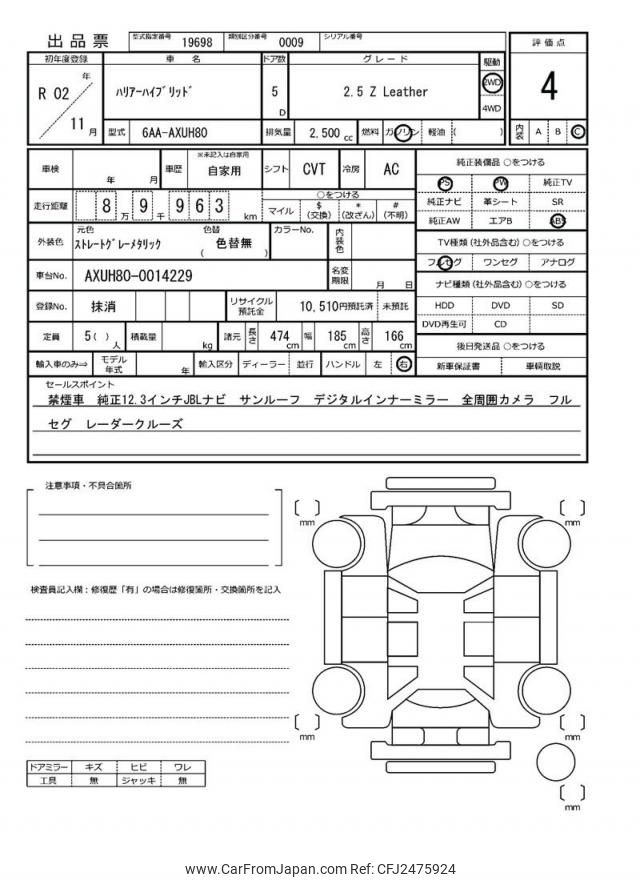 出品票 型式指定番号 19698 類別区分番号 0009 シリアル番号
初年度登録 車名 ドア数 グレード 駆動 評価点
R 02 年 11 月 ハリアーハイブリッド 5 D 2.5 Z Leather 2WD 4WD 4
型式 6AA-AXUH80 排気量 2,500 cc 燃料 ガソリン 軽油 ( ) 内装 A B C
車検 年 月 車歴 ※未記入は自家用 自家用 シフト CVT 冷房 AC 純正装備品 ○をつける
PS PW 純正TV
走行距離 8 万 9 千 9 6 3 km ○をつける 純正ナビ 革シート SR
マイル $ (交換) * (改ざん) # (不明) 純正AW エアB ABS
外装色 元色 ストレートグレーメタリック 色替 ( 色替無 ) カラーNo. 内装色 TV種類 (社外品含む) ○をつける
フルセグ ワンセグ アナログ
車台No. AXUH80-0014229 名変期限 月 日 ナビ種類 (社外品含む) ○をつける
登録No. 抹消 リサイクル預託金 10,510円預託済 未預託 HDD DVD SD
DVD再生可 CD
定員 5( ) 人 積載量 kg 諸元 長さ 474 cm 幅 185 cm 高さ 166 cm 後日発送品 ○をつける
輸入車のみ⇒ モデル年式 年 輸入区分 ディーラー 並行 ハンドル 左 右 新車保証書 車輌取説
セールスポイント
禁煙車 純正12.3インチJBLナビ サンルーフ デジタルインナーミラー 全周囲カメラ フル
セグ レーダークルーズ
注意事項・不具合箇所
mm mm
検査員記入欄:修復歴「有」の場合は修復箇所・交換箇所を記入
mm mm
ドアミラー キズ ヒビ ワレ
工具 無 ジャッキ 無
mm
www.CarFromJapan.com Ref: CFJ2475924